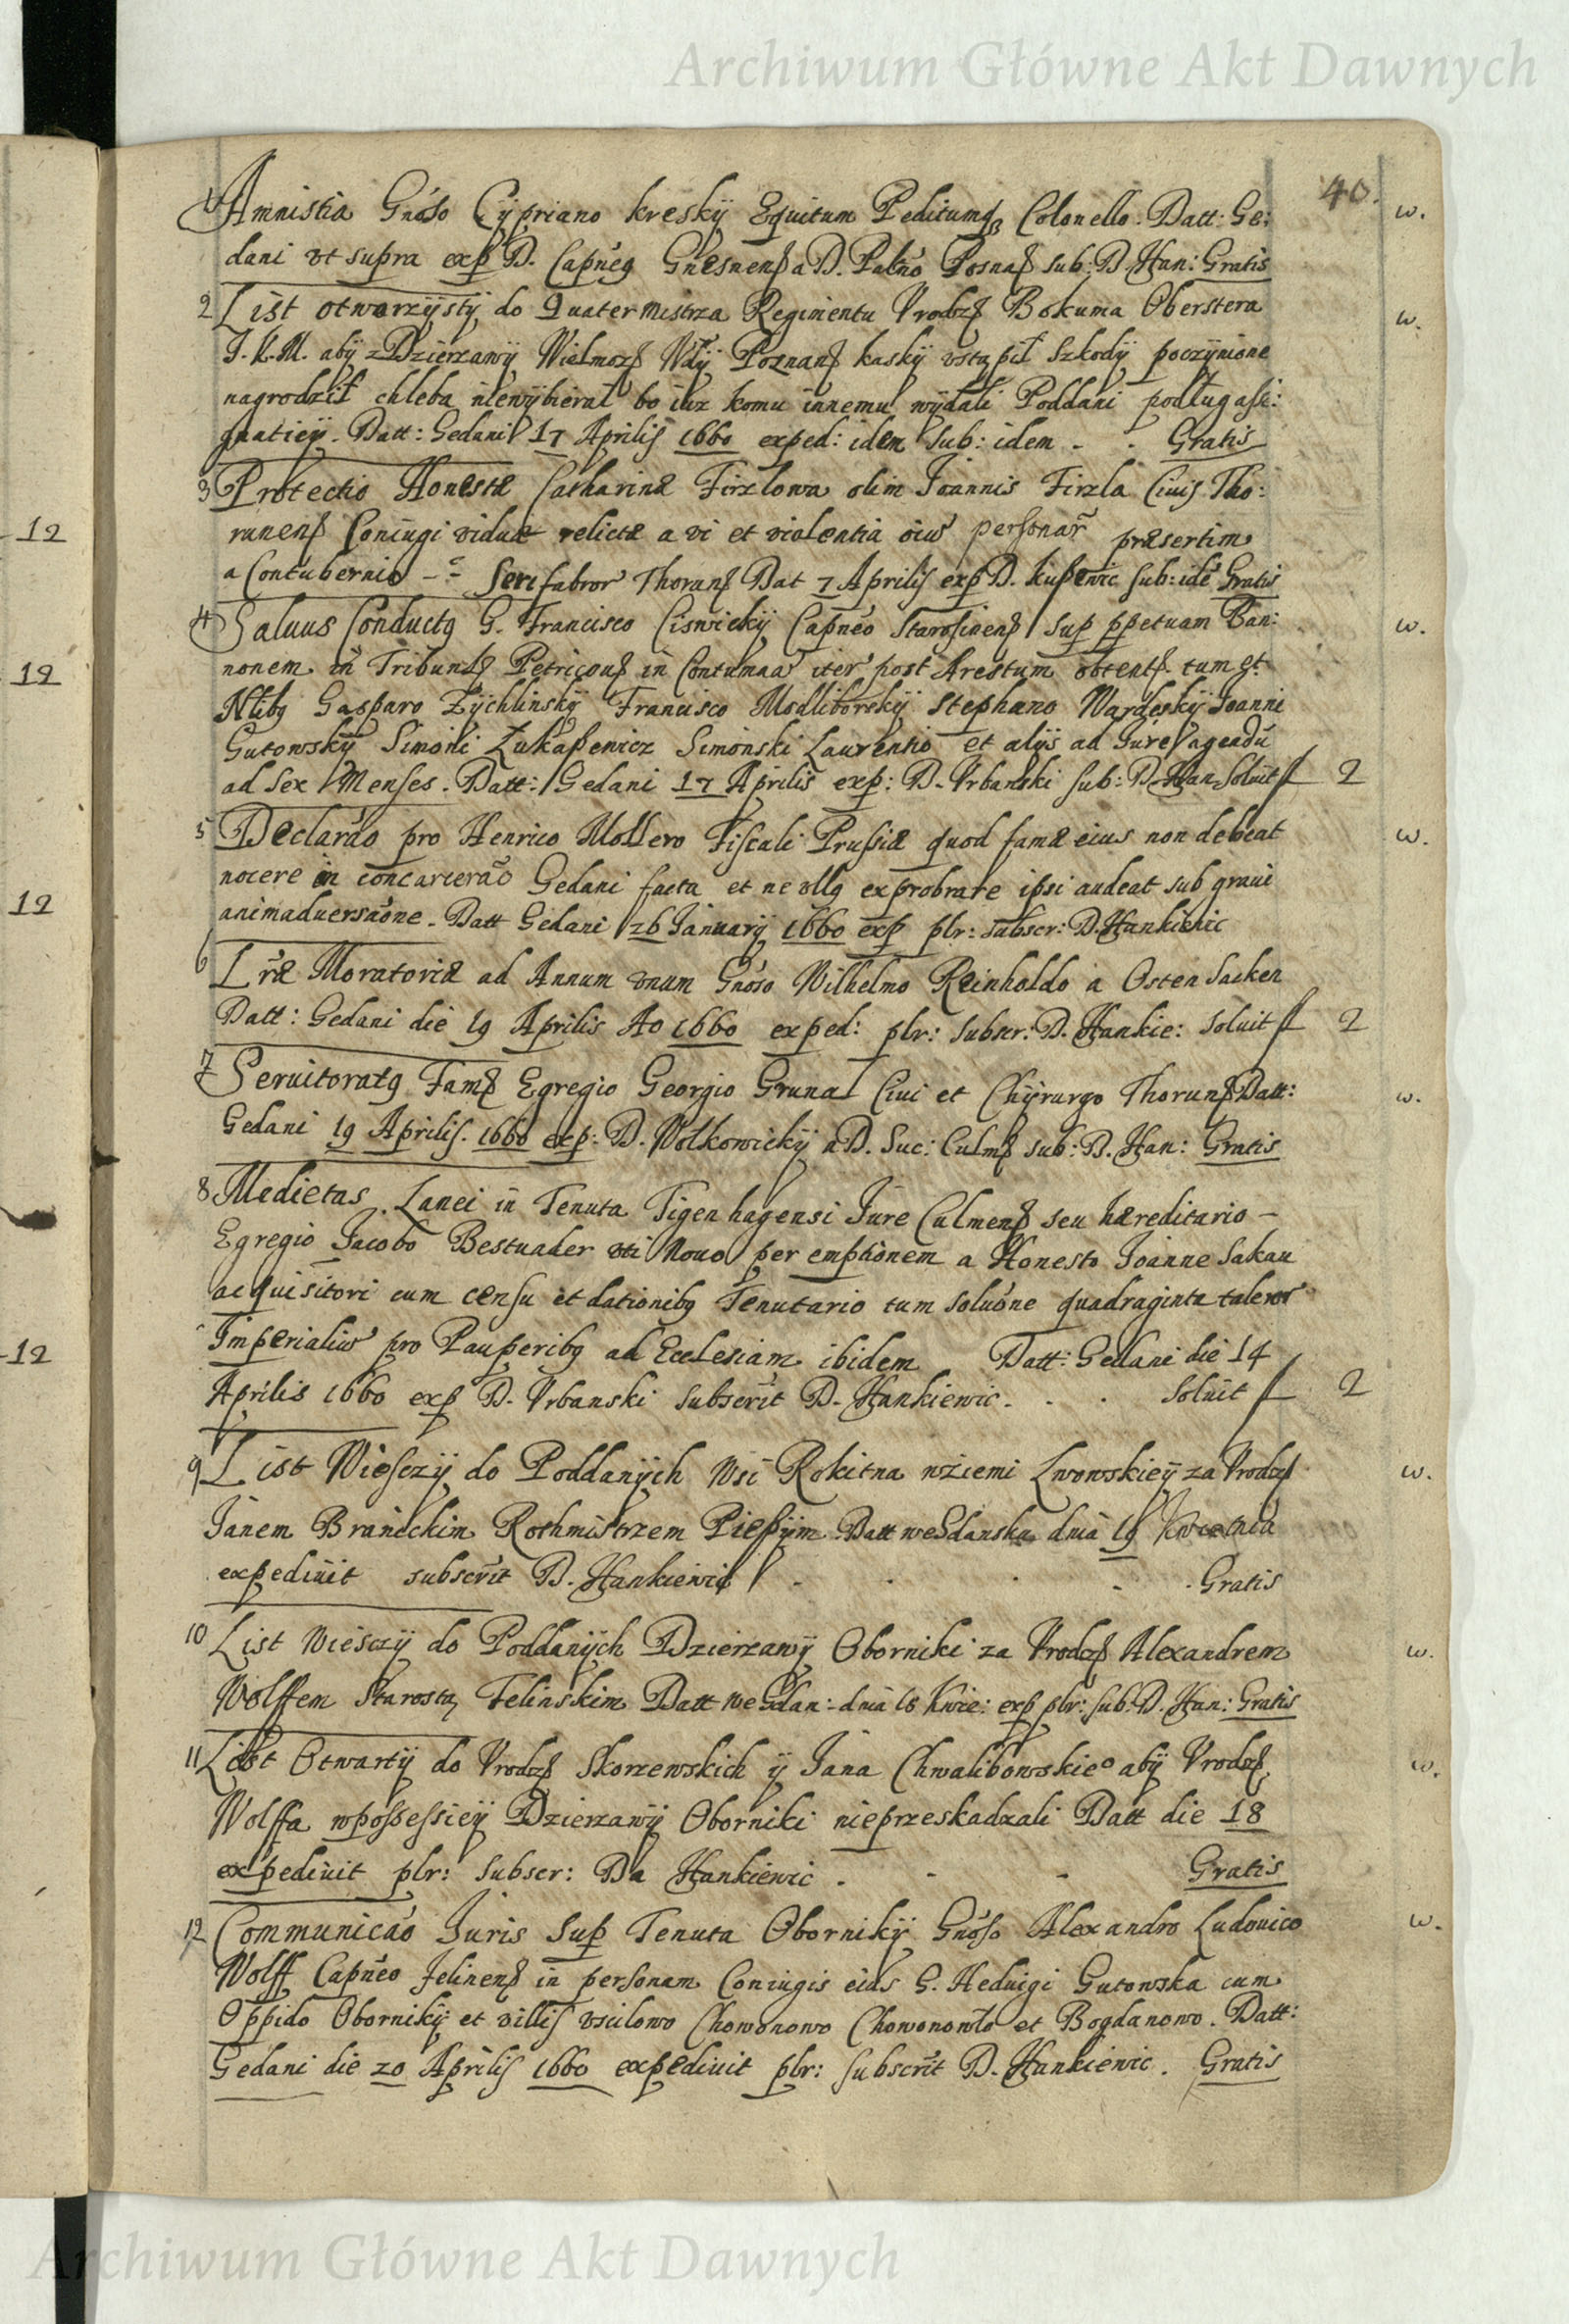 Archiwum Główne Akt Dawnych
40.
1 Amnistia Gnōso Cypriano kresky Equitum Peditumq Colonello. Datt: Ge:
dani vt supra exp D. Capneg Gnesnens a D. Palno Posnas sub: D Han: Gratis
w.
2 List otwarzysty do Quatermistrza Regimentu Vrodz Bokuma Oberstera
w.
J. K. M. aby z Dzierzawy Wielmoz Wdy Poznans kasky vstąpił Szkody poczynione
nagrodził chleba niewybierał bo iuz komu innemu wydali Poddani podług assi:
gnatiey. Datt: Gedani 17 Aprilis 1660 exped: idem sub: idem - . Gratis
3 Protectio Honestæ Catharinæ Firzlowa olim Joannis Firzla Ciuis Tho:
runens Coniugi viduæ relictæ a vi et violentia oiu personar præsertim
12
a Contubernio - Seri fabror Thoruns Dat 7 Aprilis exp D. kupewic sub: ide Gratis
4 Saluus Conductg G. Francisco Ciswicky Capneo Starosinens sup ppetuam Ban:
w.
nonem in Tribunls Petricous in Contumaa iter post Arestum obtents tum et
12
Nlibg Gasparo Zychlinsky Francisco Modliborsky Stephano Wardesky Joanni
Gutowsky Simoni Łukasewicz Simonski Laurentio et alys ad Jure agendū
ad sex Menses. Datt: Gedani 17 Aprilis exp: D. Vrbanski sub: D. Han. Soluit f 2
5 Declarāo pro Henrico Mollero Fiscali Prussiæ quod famæ eius non debeat
w.
nocere in concarcerāo Gedani facta et ne vllg exprobrare ipsi audeat sub graui
12
animaduersāone. Datt Gedani 26 Januarij 1660 exp plr: subscr: D. Hankiewic
6 Lræ Moratoriæ ad Annum vnum Gnōso Wilhelmo Reinholdo a Osten Sacken
Datt: Gedani die 19 Aprilis Ao 1660 exped: plr: subscr: D. Hankie: Soluit f 2
7 Seruitoratg Fams Egregio Georgio Gruna Ciui et Chyrurgo Thoruns Datt:
w.
Gedani 19 Aprilis. 1660 exp: D. Wolkowicky a D. Suc: Culms sub: D. Han: Gratis
8 Medietas Lanei in Tenuta Tigenhagensi Jure Culmens seu hæreditario -
Egregio Jacobo Bestuader vti Nouo per emptionem a Honesto Joanne Sakau
acquisitori cum censu et dationibg Tenutario tum soluōne quadraginta taleror
Imperialiu pro Pauperibg ad Ecclesiam ibidem Datt: Gedani die 14
12
Aprilis 1660 exp D. Vrbanski subscrit D. Hankiewic. . . Soluit f 2
9 List Wiesczy do Poddanych Wsi Rokitna wziemi Lwowskiey za Vrodz
w.
Janem Branickim Rothmistrzem Pieszym Datt we Gdansku dnia 19 Kwietnia
expediuit subscrit D. Hankiewic - . . - . Gratis
10 List Wiesczy do Poddanych Dzierzawy Oborniki za Vrodz Alexandrem
w.
Wolffem Starostą Felinskim Datt we Gdan: dnia 18 kwie: exp plr: sub: D. Han: Gratis
11 List Otwarty do Vrodz Skorzewskich y Jana Chwalibowskieo aby Vrodz
w.
Wolffa wpossessiey Dzierzawy Oborniki nieprzeskadzali Datt die 18
expediuit plr: subscr: Da Hankiewic . - - Gratis
12 Communicāo Juris sup Tenuta Oborniky Gnōso Alexandro Ludouico
w.
Wolff Capneo Felinens in personam Coniugis eius G. Heduigi Gutowska cum
Oppido Oborniky et villis vscilowo Chowonowo Chowonowło et Bogdanowo. Datt:
Gedani die 20 Aprilis 1660 expediuit plr: subscrit D. Hankiewic. Gratis
Archiwum Główne Akt Dawnych